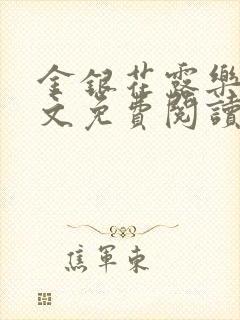 金銀花露樂
文免費閱讀
焦軍東